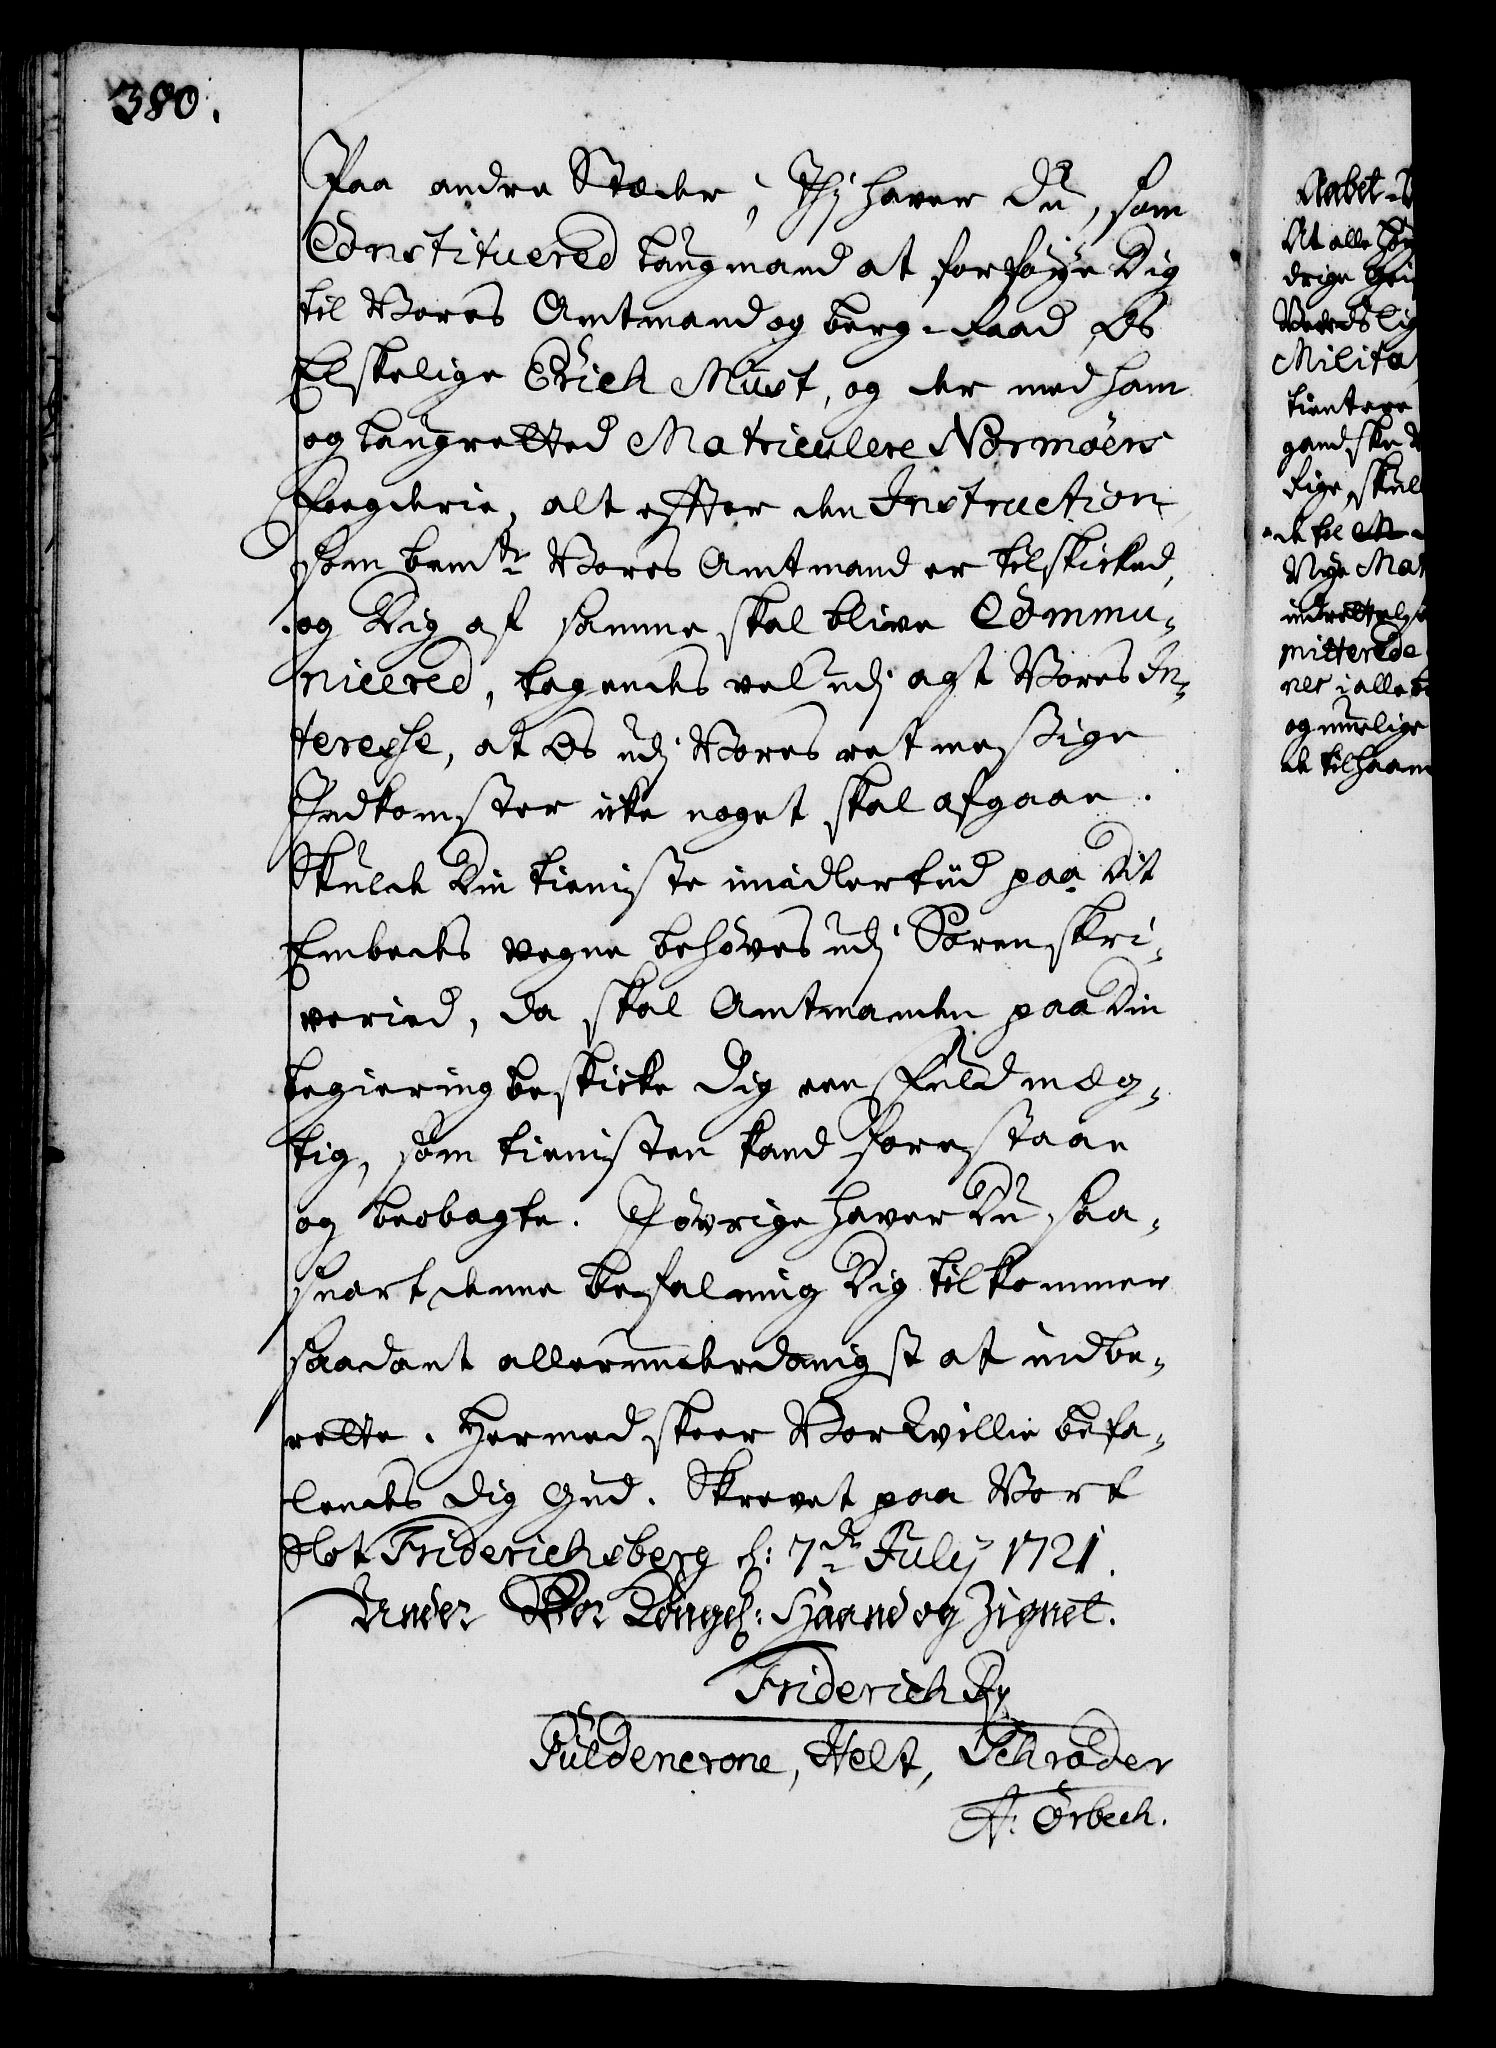 380.
Paa andre Stæder; Thj haver Du, som
Constituered Laugmand at forføye Dig
til Vores Amtmand og berg-Raad Os
Elskelige Erich Must, og der med ham
og Laugretted Matriculere Nordmøers
Fogderie, alt effter den Instruction
som bemte Vores Amtmand er tilskicked,
og Dig af samme skal blive Commu-
nicered, tagendes vel udj agt Vores In-
teresse, at Os udj Vores retmessige
Indkomster icke noget skal afgaae.
Skulde Din tieniste imidlertiid paa Dit
Embedes vegne behöves udj Sorenskri-
veried, da skal Amtmanden paa Din
begiering beskicke Dig een Fuldmæg-
tig, som tienisten kand forestaae
og beobagte. J övrige haver Du saa-
snart denne befalning Dig tilkommer
saadant allerunderdanigst at indbe-
rette. Hermed skeer Vor Villie befa-
lendes Dig Gud. Skrevet paa Vort
Slot Friderichsberg d: 7de July 1721.
Under Vor Kongel: Haand og Zignet.
Friderich R
Güldencrone, Helt, Schrøder
A: Örbech.
Aabet
At alle
drige
Milita
tientere
gandske
fige, skul
de til
Nÿe Mat
mitterede
ner i alle
og muelige
de tilhaan